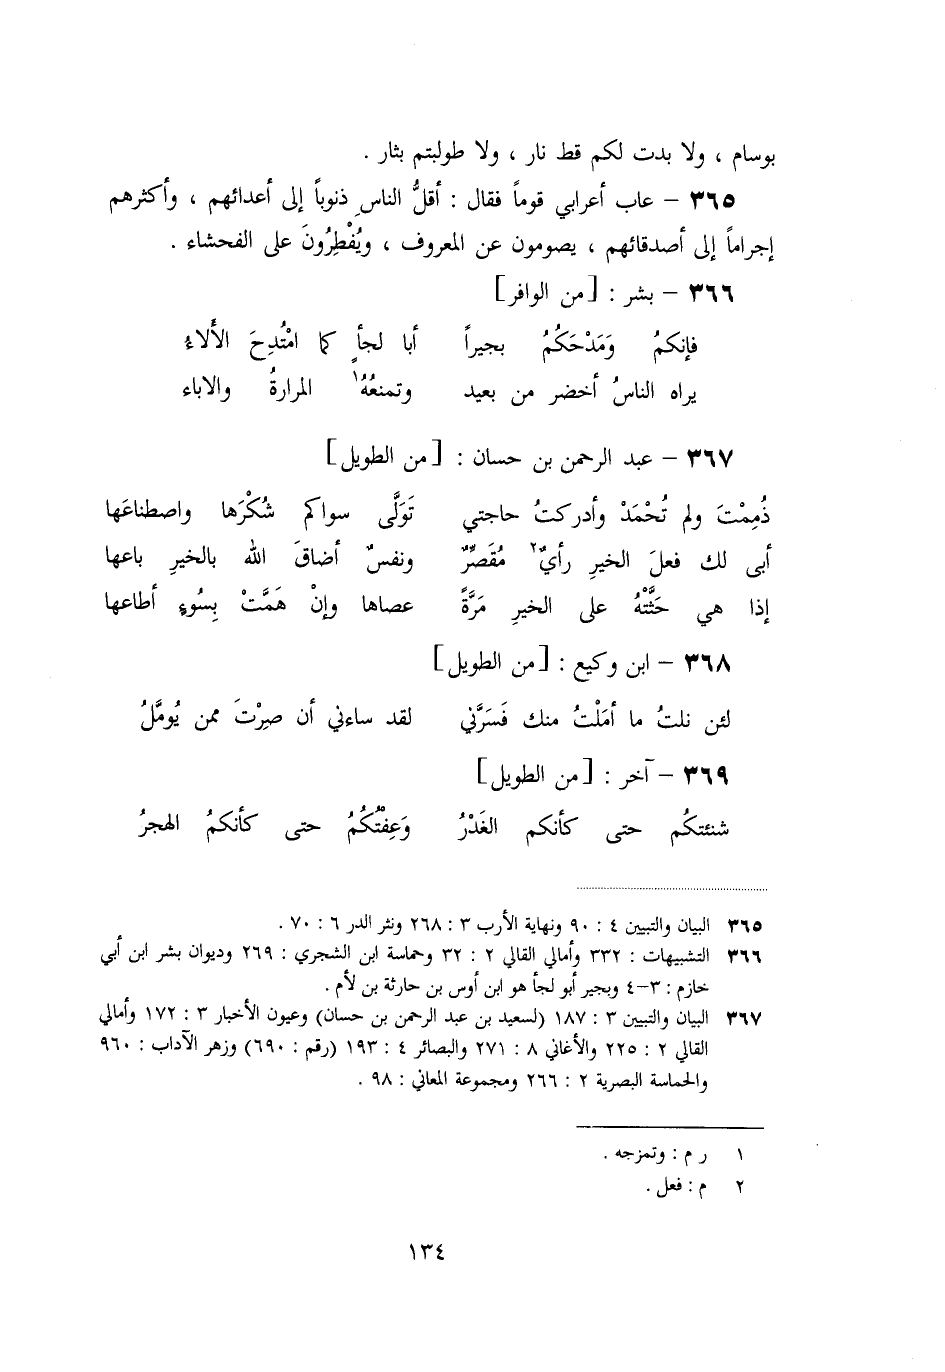 بوسام ، ولا بدت لكم قط نار ، ولا طولبتم بثار .
٣٦٥ – عاب أعرابي قوماً فقال : أقلُّ الناسِ ذنوباً إلى أعدائهم ، وأكثرهم
إجراماً إلى أصدقائهم ، يصومون عن المعروف ، ويُفْطِرُونَ على الفحشاء .
٣٦٦ – بشر : [من الوافر]
فإنكمُ وَمَدْحَكُمُ بجيراً أبا لجأٍ كما امْتُدِحَ الأَلاءُ
يراه الناسُ أخضر من بعيد وتمنعُهُ١ المرارةُ والاباء
٣٦٧ – عبد الرحمن بن حسان : [من الطويل]
ذُمِمْتَ ولم تُحْمَدْ وأدركتُ حاجتي تَوَلَّى سواكم شُكْرَها واصطناعَها
أبى لك فعلَ الخيرِ رأيٌ٢ مُقَصِّرٌ ونفسٌ أضاقَ الله بالخيرِ باعها
إذا هي حَثَّتْهُ على الخيرِ مَرَّةً عصاها وإنْ هَمَّتْ بِسُوءٍ أطاعها
٣٦٨ – ابن وكيع : [من الطويل]
لئن نلتُ ما أمَلْتُ منك فَسَرَّني لقد ساءني أن صِرْتَ ممن يُومَّلُ
٣٦٩ – آخر : [من الطويل]
شنئتكُم حتى كأنكم الغَدْرُ وَعِفْتُكُمُ حتى كأنكمُ الهجرُ
٣٦٥ البيان والتبيين ٤ : ٩٠ ونهاية الأرب ٣ : ٢٦٨ ونثر الدر ٦ : ٧٠ .
٣٦٦ التشبيهات : ٣٣٢ وأمالي القالي ٢ : ٣٢ وحماسة ابن الشجري : ٢٦٩ وديوان بشر ابن أبي
خازم : ٣–٤ وبجير أبو لجأ هو ابن أوس بن حارثة بن لأم .
٣٦٧ البيان والتبيين ٣ : ١٨٧ (لسعيد بن عبد الرحمن بن حسان) وعيون الأخبار ٣ : ١٧٢ وأمالي
القالي ٢ : ٢٢٥ والأغاني ٨ : ٢٧١ والبصائر ٤ : ١٩٣ (رقم : ٦٩٠) وزهر الآداب : ٩٦٠
والحماسة البصرية ٢ : ٢٦٦ ومجموعة المعاني : ٩٨ .
١ ر م : وتمزجه .
٢ م : فعل .
١٣٤